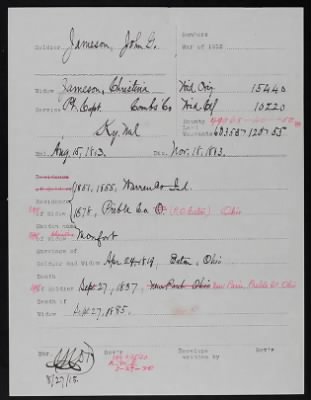 Numbers
Soldier Jameson, John G. War of 1812
Widow Jameson, Christina Wid Orig 15440
Service Pt. Capt. Combs Co Wid Ctf 10220
Bounty 49065-40-50
Ky. Mil Land Warrants 60358 7-120-55
Enl. Aug. 15, 1813. Dis. Nov. 18, 1813.
Residence
of Soldier 1851, 1855, Warren Co. Ind.
Residence
of Widow 1878, Preble Co. O. (P.O. Eaton) Ohio
Maiden name
of Widow Monfort
Marriage of
Soldier and Widow Apr 29-1819, Eaton, Ohio
Death
of Soldier Sept. 27, 1837, New Paris, Ohio New Paris, Preble Co. Ohio
Death of
Widow Sept. 27, 1885.
Rev's
Envelope
written by
Rev's
8/27/15.